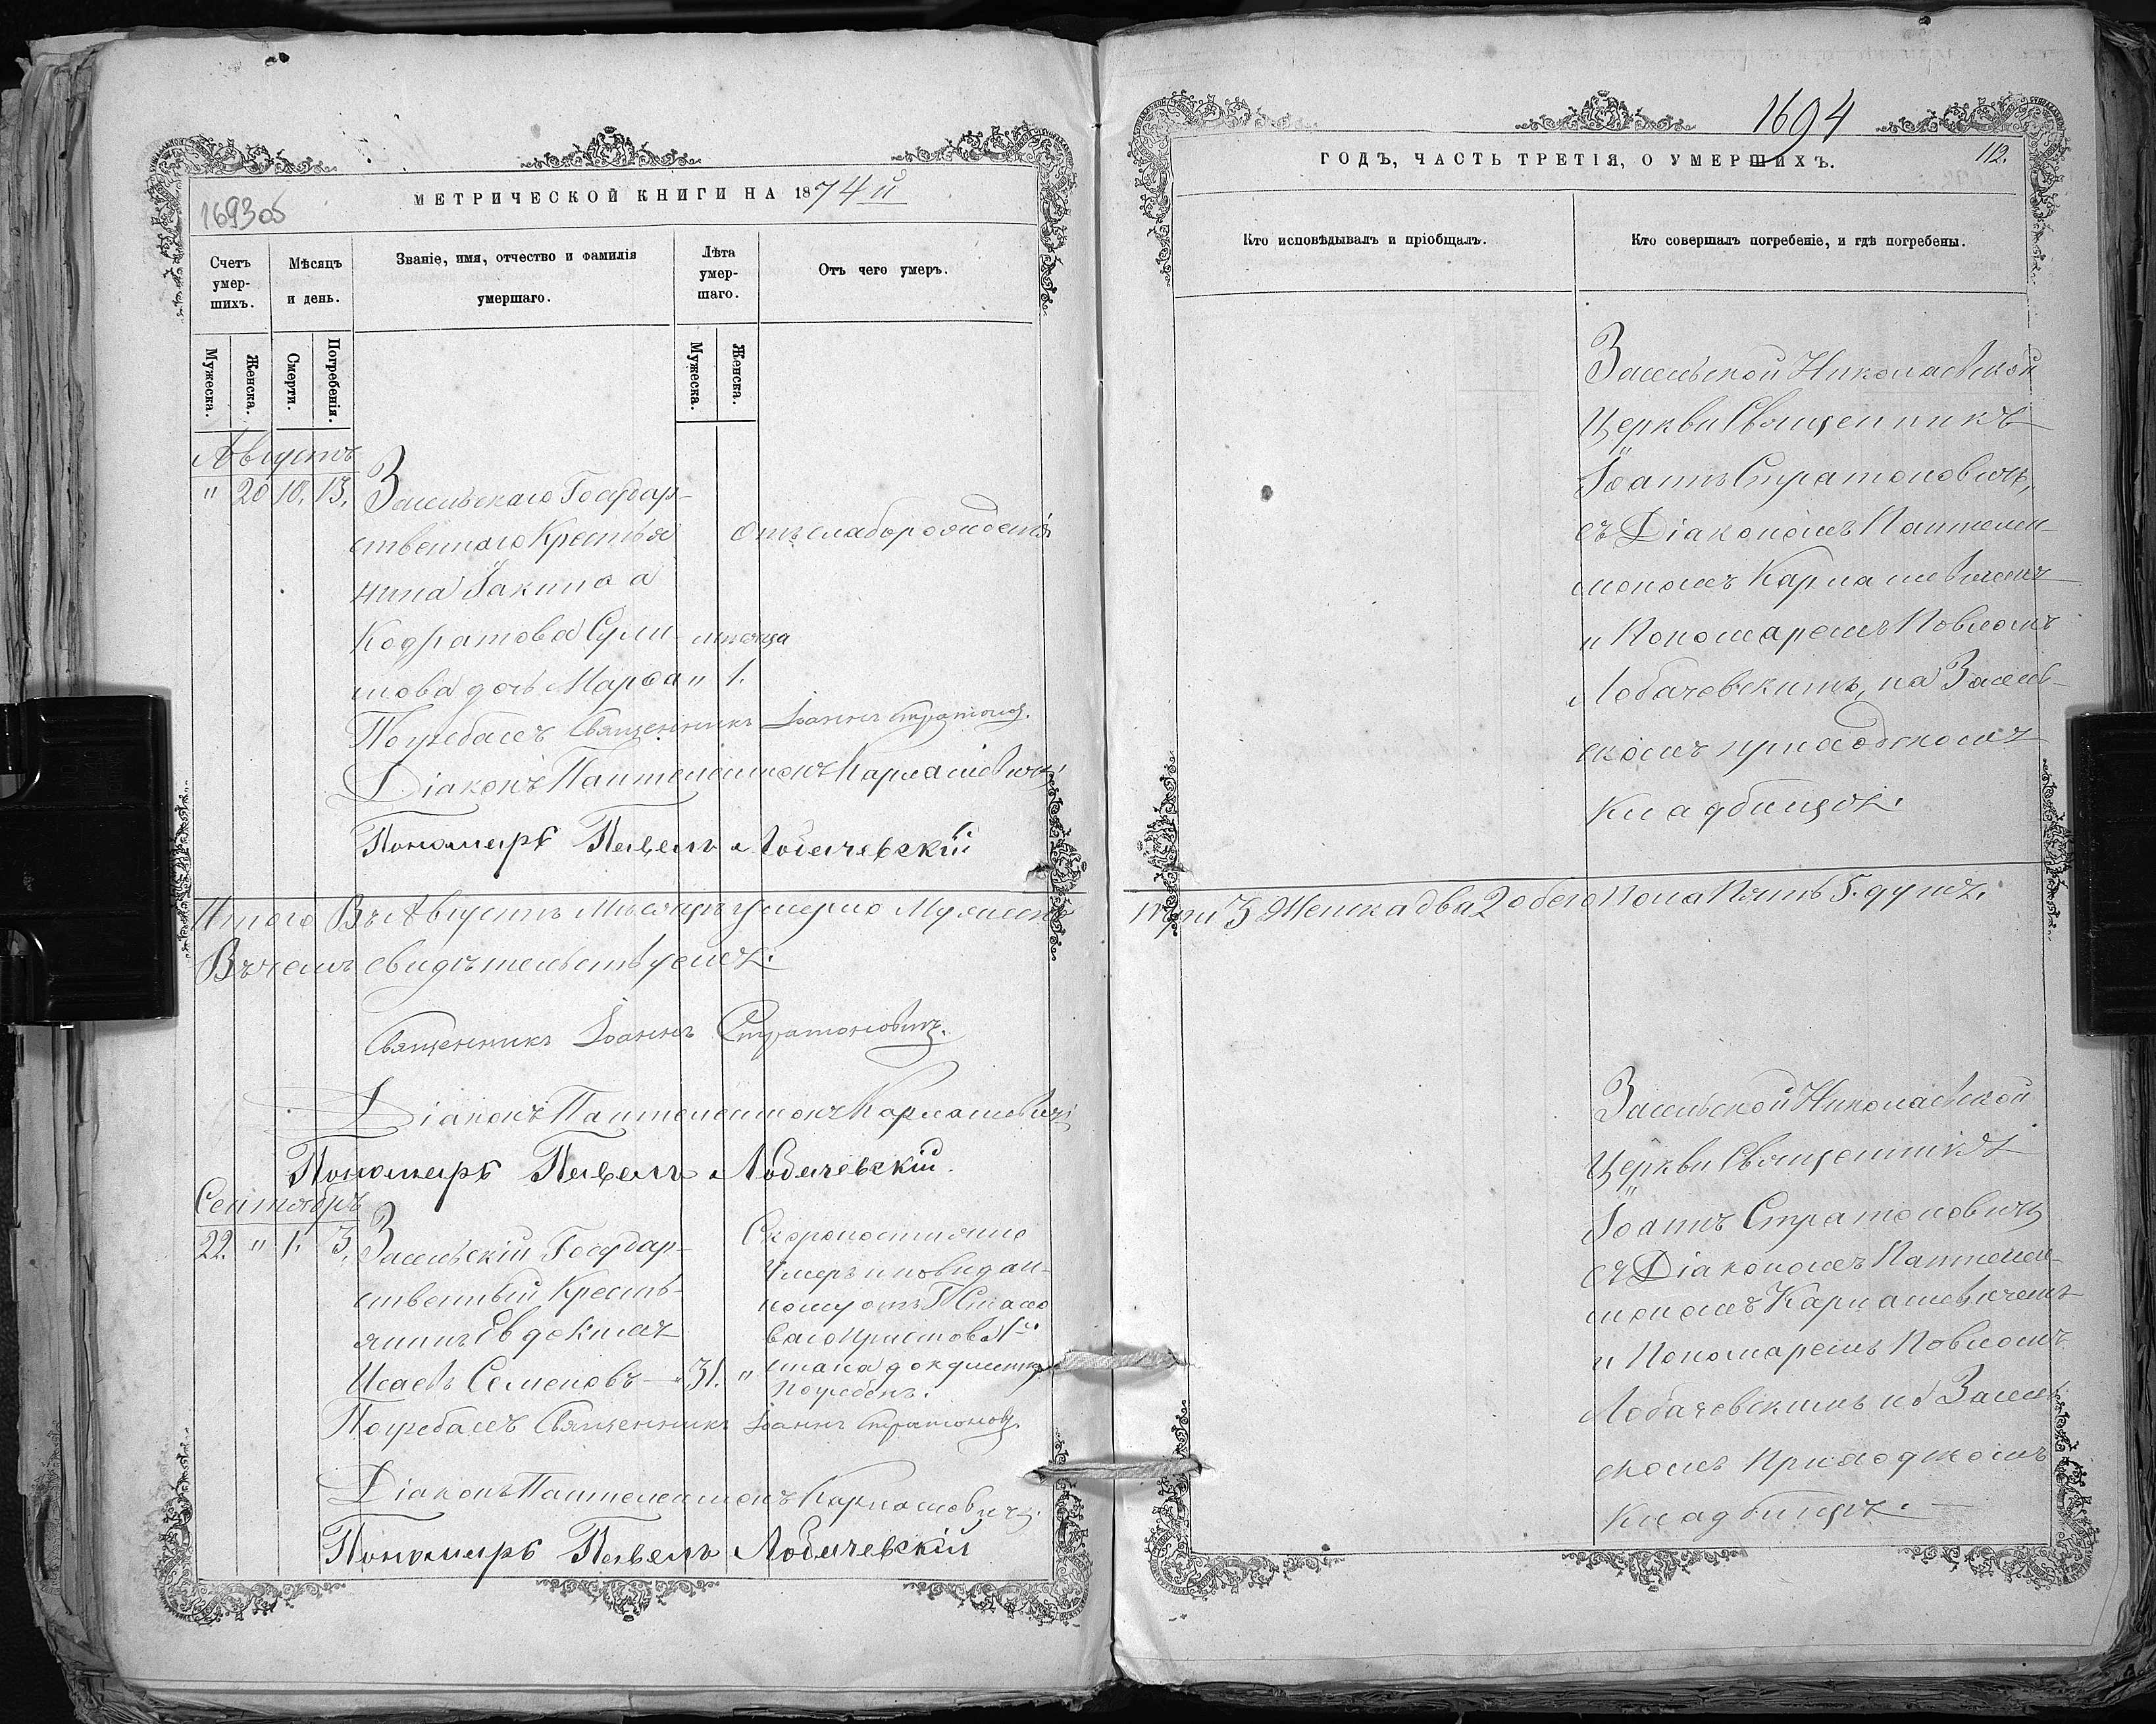 1693об
МЕТРИЧЕСКОЙ КНИГИ НА 1874й
Счетъ умер-шихъ.
Мѣсяцъ и день.
Званіе, имя, отчество и фамилія умершаго.
Лѣта умер-шаго.
Отъ чего умеръ.
Мужеска.
Женска.
Смерти.
Погребенія.
Мужеска.
Женска.
Августъ
" 20 10. 13.
Засельскаго Государ-
ственнаго Крестья
нина Іакинѳа
Кодратова
дочь Марѳа " 1.
мѣсяца
Отъ слаборожденія
Погребалъ Священникъ Іоаннъ Стратонов.
Діаконъ Пантелеимонъ Карпашевичъ
Пономарь Павелъ Лобачевскій
Итого Въ Августѣ Мѣсяцѣ умерло Мужеска
Въ чемъ свидѣтельствуемъ:
Священникъ Іоаннъ Стратоновичъ.
Діаконъ Пантелеимонъ Карпашевичъ
Пономарь Павелъ Лобачевскій.
Сентябрь
22. " 1. 3.
Засельскій Государ-
ственный Кресть-
янинъ Евдокимъ
Исаевъ Семеновъ — 31. "
Скоропостижно
умеръ и по выдан-
ному отъ Г Стано
ваго Пристава 1го
стана документу
погребенъ.
Погребалъ Священникъ Іоаннъ Стратонов.
Діаконъ Пантелеимонъ Карпашевичъ.
Пономарь Павелъ Лобачевскій
1694
112.
ГОДЪ, ЧАСТЬ ТРЕТІЯ, О УМЕРШИХЪ.
Кто исповѣдывалъ и пріобщалъ.
Кто совершалъ погребеніе, и гдѣ погребены.
Засельской Николаевской
Церкви Священникъ
Іоаннъ Стратоновичъ,
съ Діакономъ Пантелеи
мономъ Карпашевичемъ
и Пономаремъ Павломъ
Лобачевскимъ, на Засель-
скомъ приходскомъ
кладбищѣ.
три 3 Женска два 2 обего пола Пять 5. душъ.
Засельской Николаевской
Церкви Священникъ
Іоаннъ Стратоновичъ
съ Діакономъ Пантелеи-
мономъ Карпашевичемъ
и Пономаремъ Павломъ
Лобачевскимъ на Засель
скомъ Приходскомъ
кладбищѣ. —